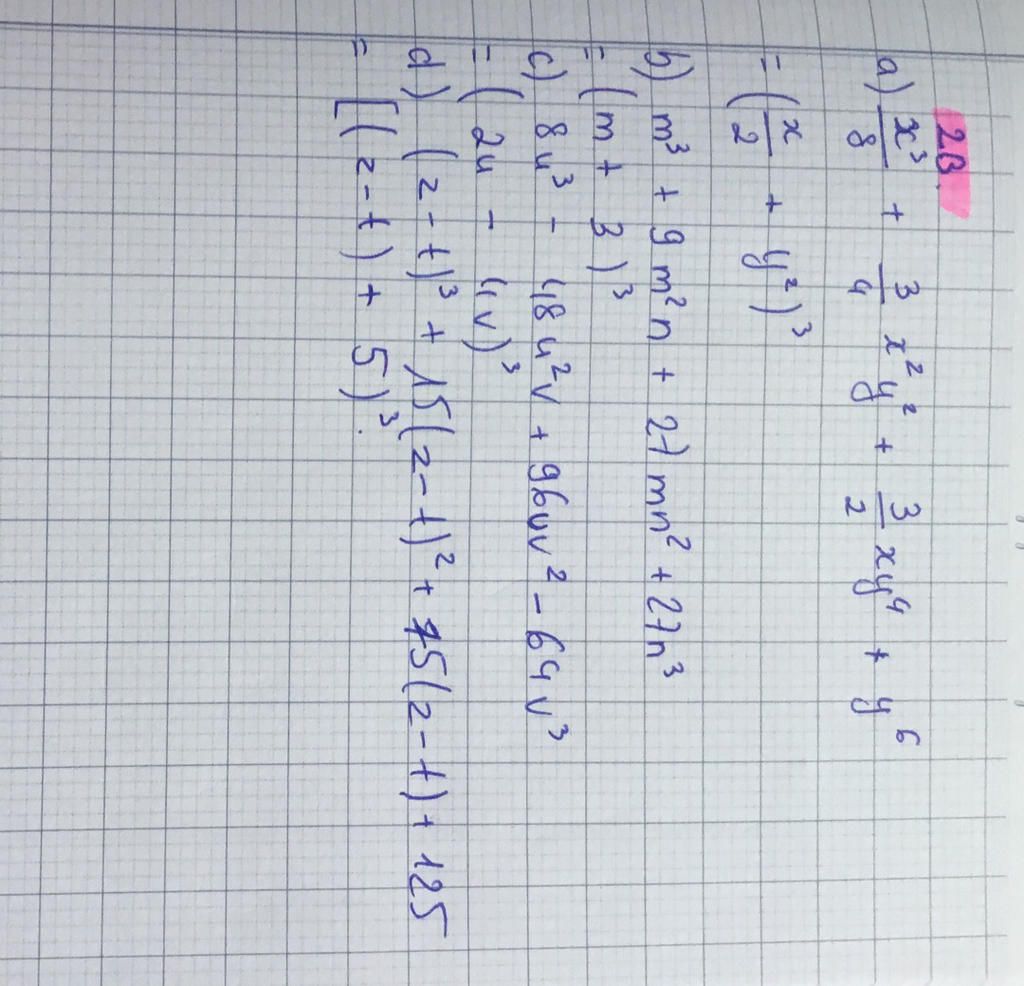 2B.
a) x³/8 + 3/4 x²y² + 3/2 xy⁴ + y⁶
= (x/2 + y²)³
b) m³ + 9m²n + 27mn² + 27n³
= (m + 3)³
c) 8u³ - 48u²v + 96uv² - 64v³
= (2u - 4v)³
d) (z - t)³ + 15(z - t)² + 75(z - t) + 125
= [(z - t) + 5)³.